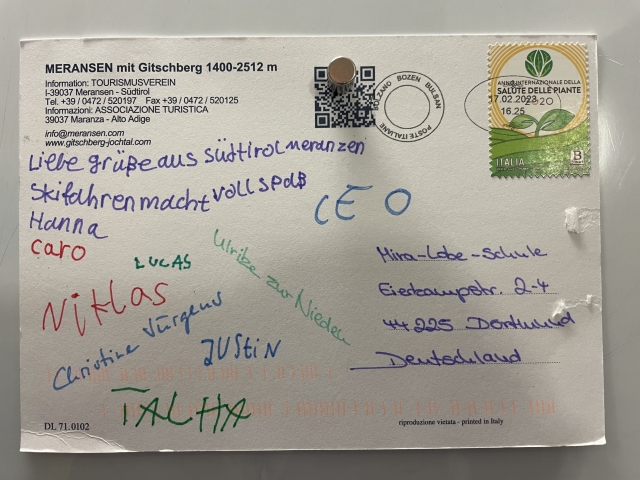 MERANSEN mit Gitschberg 1400-2512 m
Information: TOURISMUSVEREIN
I-39037 Meransen - Südtirol
Tel. +39 / 0472 / 520197 Fax +39 / 0472 / 520125
Informazioni: ASSOCIAZIONE TURISTICA
39037 Maranza - Alto Adige
info@meransen.com
www.gitschberg-jochtal.com
BOLZANO BOZEN BULSAN
POSTE ITALIANE
ANNO INTERNAZIONALE DELLA
SALUTE DELLE PIANTE
2020
17.02.2023
16.25
ITALIA B
Liebe grüße aus Südtirol meranzen
Skifahren macht voll spaß
Hanna
CEO
caro
LUCAS
Ulrike zur Nieden
Niklas
Christine Jürgens
JUStiN
TALHA
Mira-Lobe-Schule
Eierkampstr. 2-4
44225 Dortmund
Deutschland
DL 71.0102
riproduzione vietata - printed in Italy